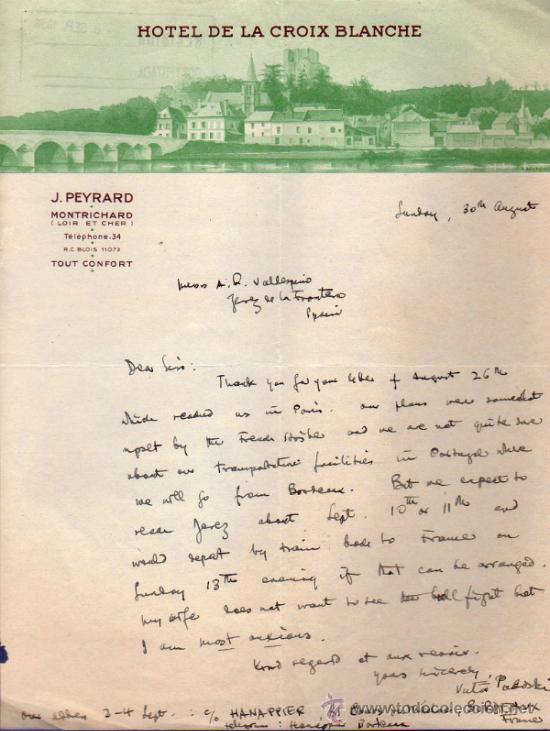 HOTEL DE LA CROIX BLANCHE
J. PEYRARD
MONTRICHARD
(LOIR ET CHER)
Téléphone.34
R.C. BLOIS 11073
TOUT CONFORT
Sunday, 30th August
Mess A. R. Vallespino
Jerez de la Frontera
Spain
Dear Sirs:
Thank you for your letter of August 26th
which reached us in Paris. Our plans were somewhat
upset by the French and we are not quite sure
about our transportation facilities in Portugal where
we will go from Bordeaux. But we expect to
reach Jerez about Sept. 10th or 11th and
would depart by train back to France on
Sunday 13th evening if that can be arranged.
My wife does not want to see bull fight but
I am most anxious.
Kind regard et aux revoir.
Yours sincerely,
Victor
our address 3-4 Sept. : c/o HANAPPIER BORDEAUX
Bordeaux France
todocoleccion